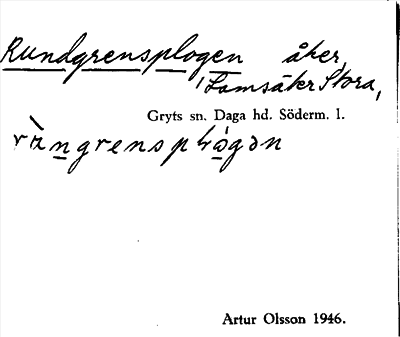 Rundgrensplogen åker,
Lamsäker Stora,
Gryts sn. Daga hd. Söderm. l.
Artur Olsson 1946.